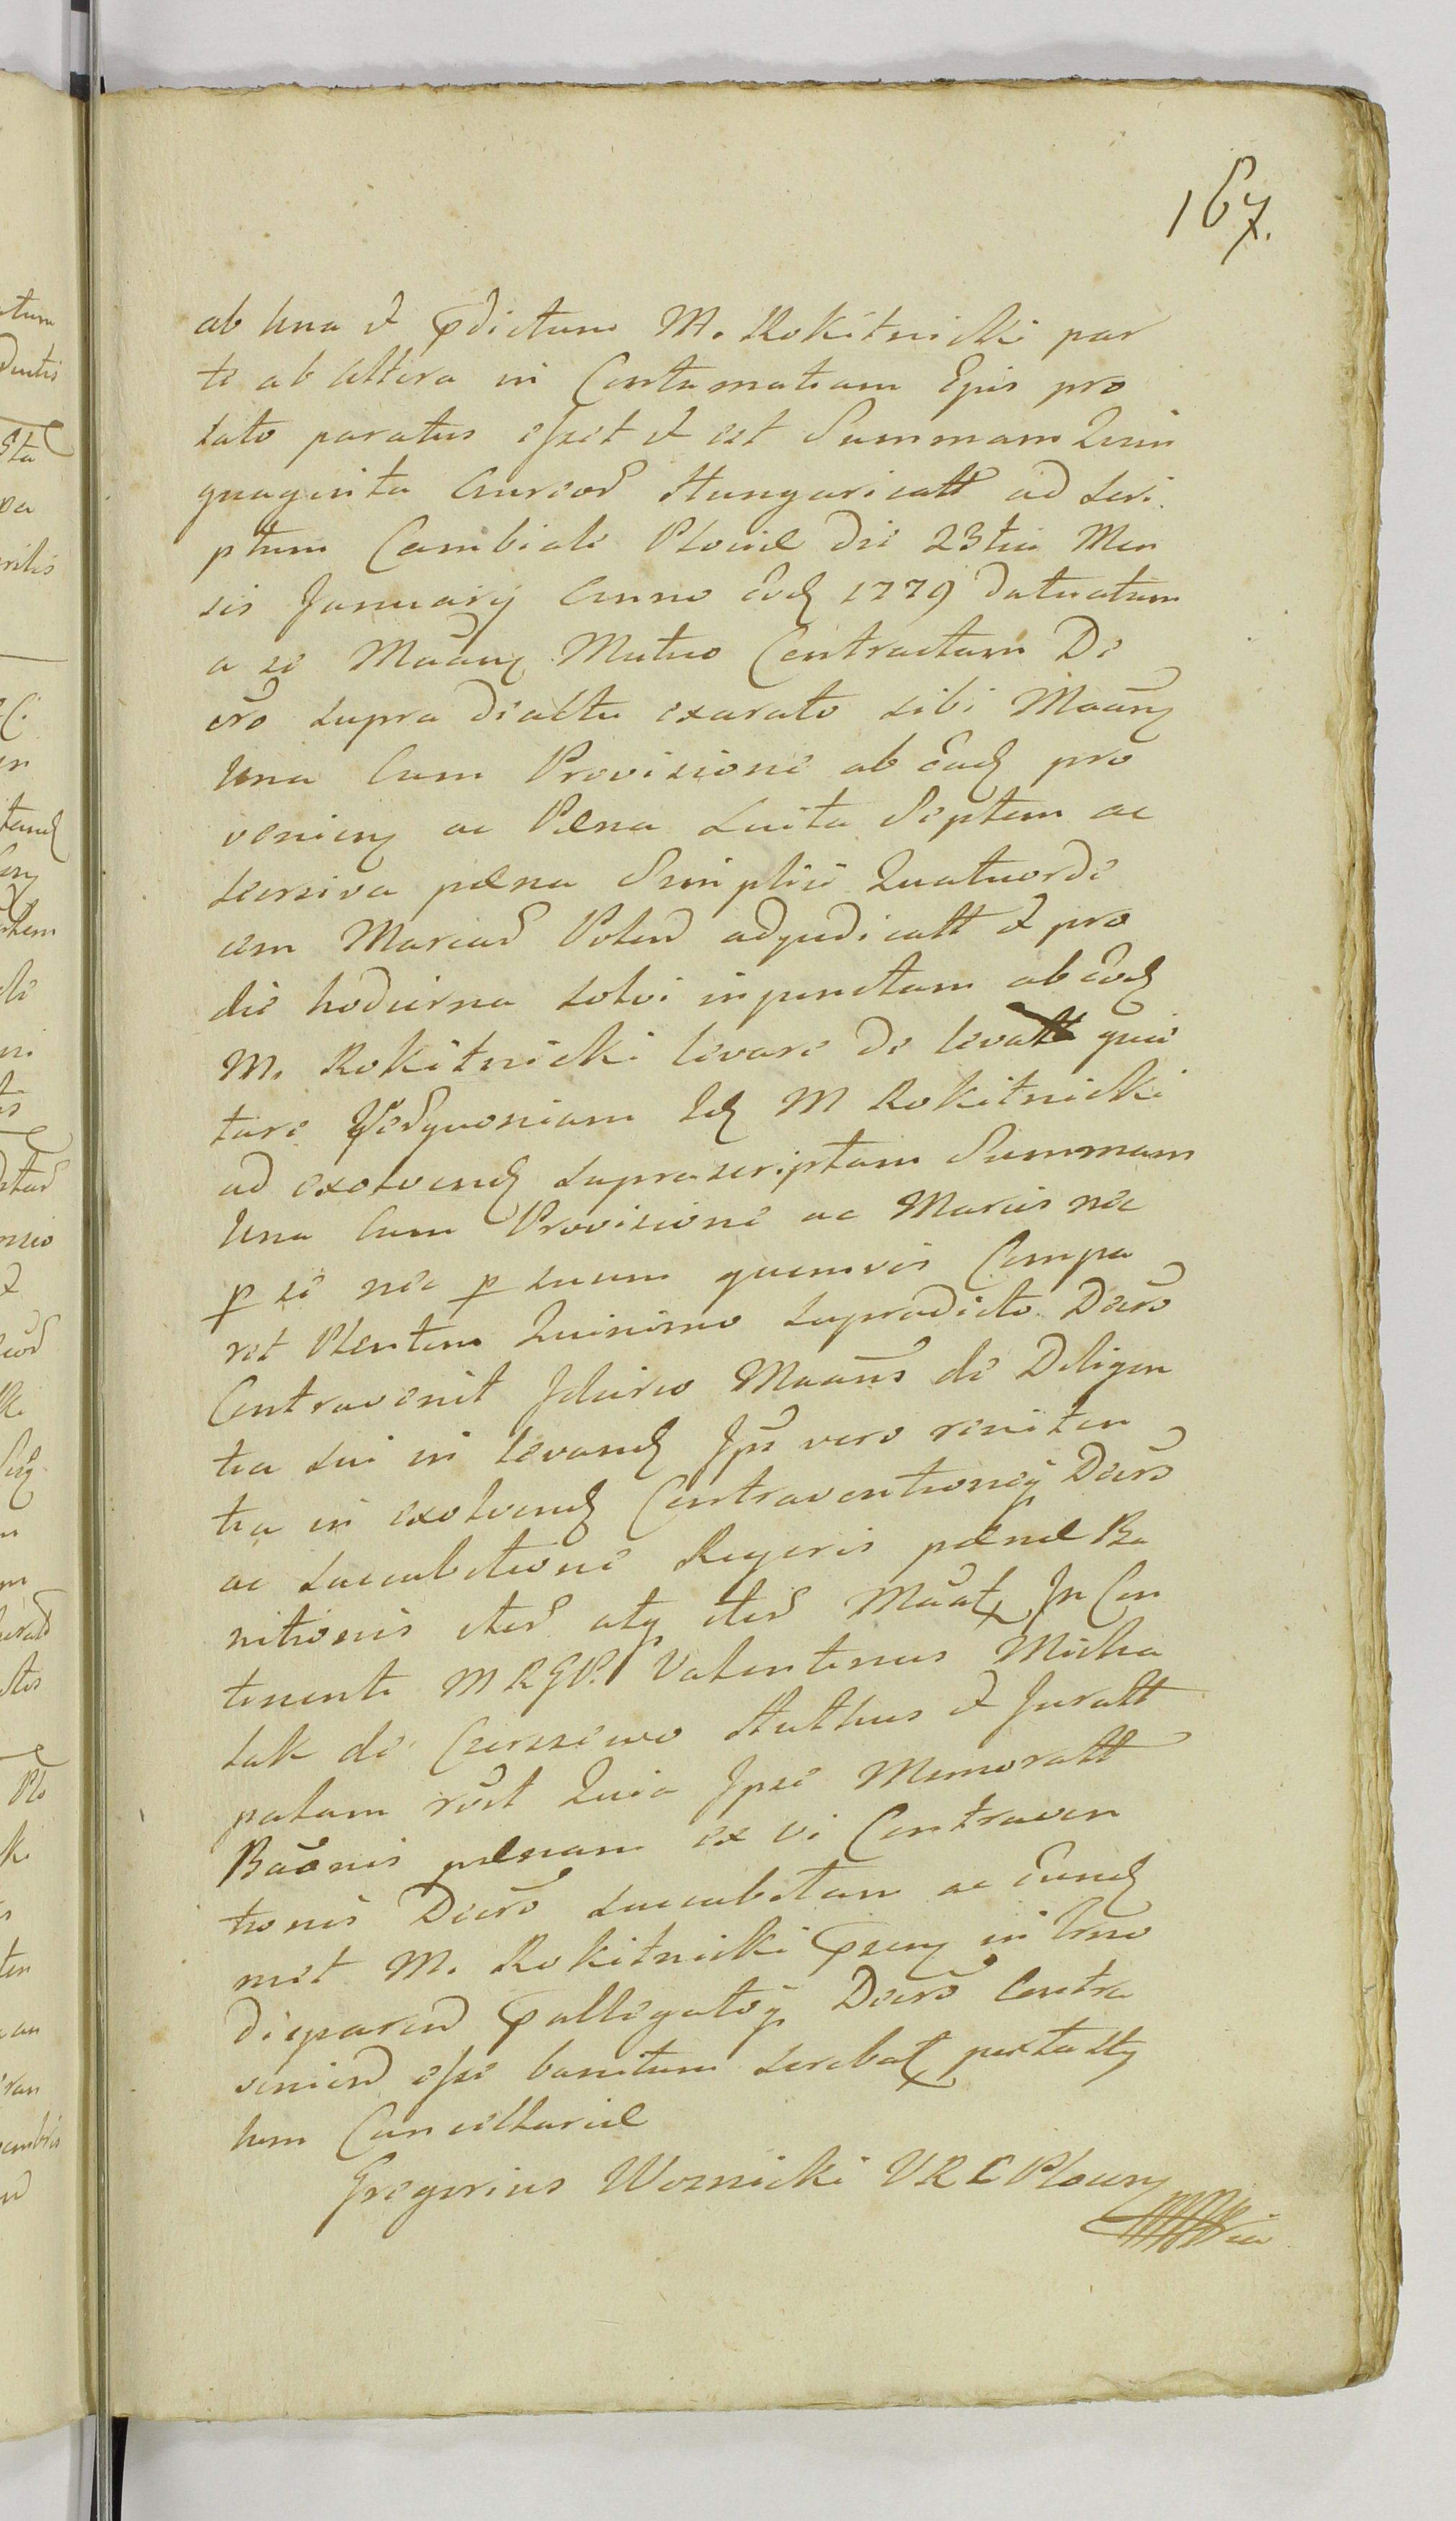 167.
ab Una et prdictum M. Rokitnicki par
te ab altera in Contumatiam Ejus pro
lato paratus esset et est Summam Quin
quaginta Aureor Hungaricall ad scri
ptum Cambiale Plociæ die 23tia Men
sis January Anno eod 1779 datuatum
a se Maang Mutuo Contractam De
cro supra de actu exarato sibi Maang
Una Cum Provisione ab ead pro
venieng ac Pæna Luita Septem ac
tersiva pæna Simplici Quatuorde
cem Marcar Polon adjudicatt et pro
die hodierna solvi injunctam ab eod
M. Rokitnicki levare de levatt quie
tare Verquoniam Id M Rokitnicki
ad exolvend supra scriptam Summam
Una Cum Provisione ac Marcis nec
p se nec p suum quemvis Compa
ret Plentem Quinimo supradicto Decro
Contravenit Idcirco Maans de Diligen
tia sui in levand Ips vero reniten
tia in exolvend Contraventioneq Decro
ac succubitione Rigoris pænæ Ba
nitionis iter atq iter Maat In Con
tinenti M R G P. Valentinus Micha
lak de Cierszewo Huthus et Juratt
palam rōst Quia Ipse Memoratt
Baōnis pænam ex vi Contraven
tionis Decro succubitam ac eund
met M. Rokitnicki prseng in Urno
disparend prallegatoq Decro Contra
veniend esse banitum screbat juxta sty
lum Cancellariæ
Gregorius Woznicki V R C Plocens